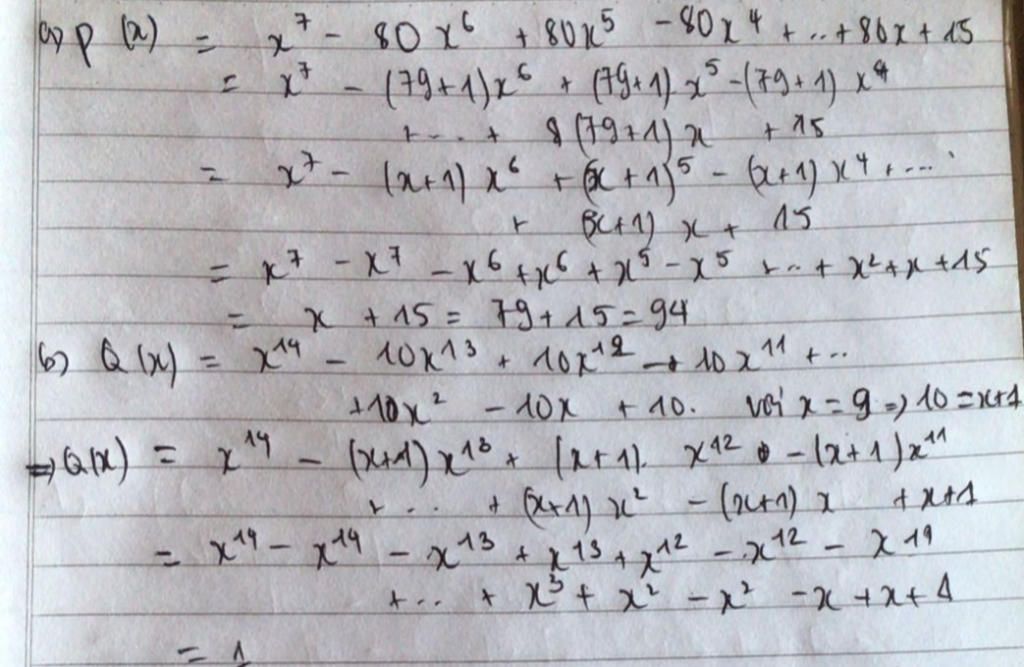 a) P(x) = x⁷ - 80x⁶ + 80x⁵ - 80x⁴ + ... + 80x + 15
= x⁷ - (79+1)x⁶ + (79+1).x⁵ - (79+1) x⁴
+ ... + 8(79+1)x + 15
= x⁷ - (x+1) x⁶ + (x+1)⁵ - (x+1) x⁴ + ...
+ (x+1) x + 15
= x⁷ - x⁷ - x⁶ + x⁶ + x⁵ - x⁵ + ... + x² + x + 15
= x + 15 = 79 + 15 = 94
b) Q(x) = x¹⁴ - 10x¹³ + 10x¹² - 10x¹¹ + ...
+ 10x² - 10x + 10. với x = 9 => 10 = x+1
=> Q(x) = x¹⁴ - (x+1) x¹³ + (x+1). x¹² - (x+1)x¹¹
+ ... + (x+1) x² - (x+1) x + x+1
= x¹⁴ - x¹⁴ - x¹³ + x¹³ + x¹² - x¹² - x¹⁹
+ ... + x³ + x² - x² - x + x + 1
= 1